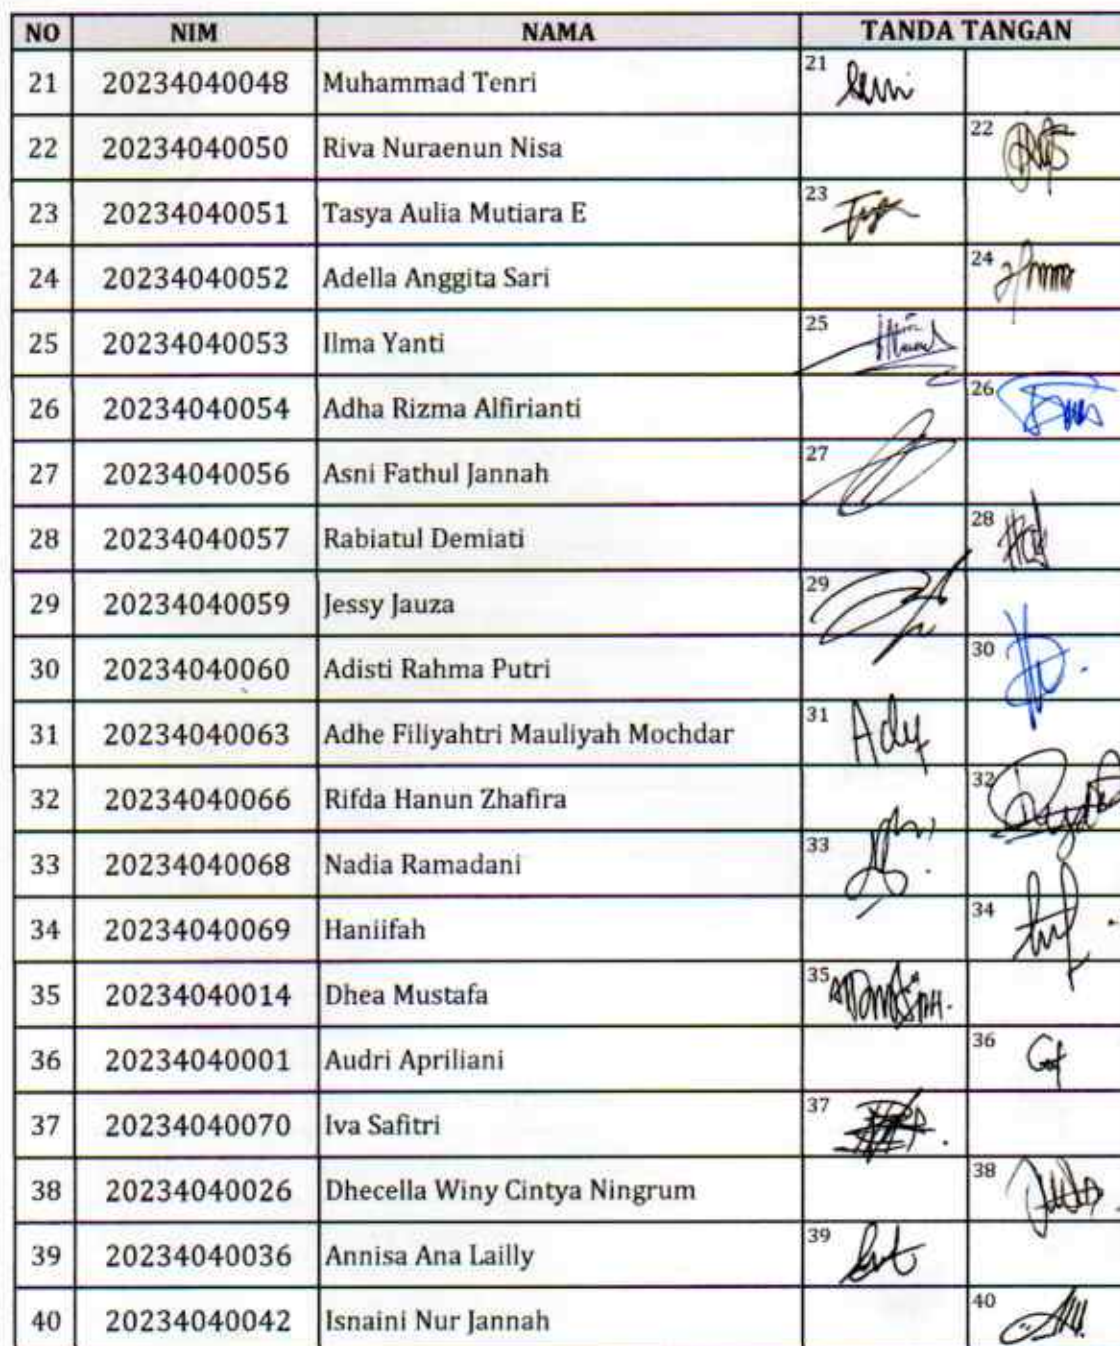 NO NIM NAMA TANDA TANGAN
21 20234040048 Muhammad Tenri 21
22 20234040050 Riva Nuraenun Nisa 22
23 20234040051 Tasya Aulia Mutiara E 23
24 20234040052 Adella Anggita Sari 24
25 20234040053 Ilma Yanti 25
26 20234040054 Adha Rizma Alfirianti 26
27 20234040056 Asni Fathul Jannah 27
28 20234040057 Rabiatul Demiati 28
29 20234040059 Jessy Jauza 29
30 20234040060 Adisti Rahma Putri 30
31 20234040063 Adhe Filiyahtri Mauliyah Mochdar 31
32 20234040066 Rifda Hanun Zhafira 32
33 20234040068 Nadia Ramadani 33
34 20234040069 Haniifah 34
35 20234040014 Dhea Mustafa 35
36 20234040001 Audri Apriliani 36
37 20234040070 Iva Safitri 37
38 20234040026 Dhecella Winy Cintya Ningrum 38
39 20234040036 Annisa Ana Lailly 39
40 20234040042 Isnaini Nur Jannah 40